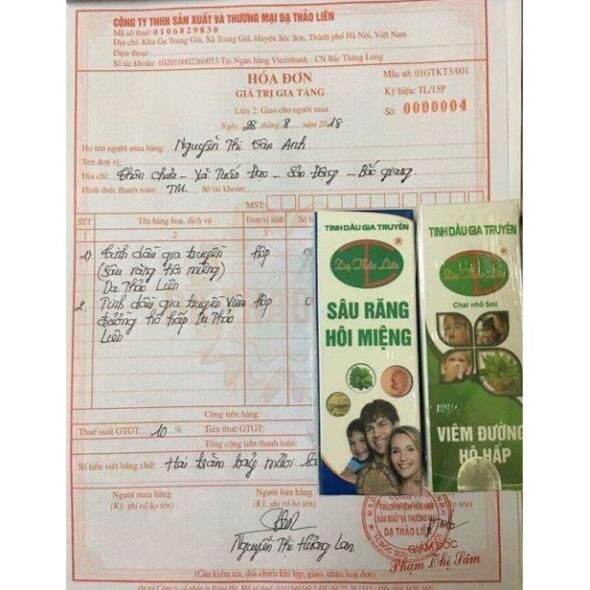 CÔNG TY TNHH SẢN XUẤT VÀ THƯƠNG MẠI DẠ THẢO LIÊN
Mã số thuế: 0106829830
Địa chỉ: Khu Ga Trung Giã, Xã Trung Giã, Huyện Sóc Sơn, Thành phố Hà Nội, Việt Nam
Điện thoại:
Số tài khoản: 102010002260053 Tại Ngân hàng Vietinbank - CN Bắc Thăng Long
HÓA ĐƠN
GIÁ TRỊ GIA TĂNG
Liên 2: Giao cho người mua
Ngày 28 tháng 8 năm 2018
Mẫu số: 01GTKT3/001
Ký hiệu: TL/15P
Số: 0000004
Họ tên người mua hàng: Nguyễn Thị Vân Anh
Tên đơn vị:
Địa chỉ: Thôn Chùa - Xã Tuấn Đạo - Sơn Động - Bắc Giang
Hình thức thanh toán: TM. Số tài khoản:
MST:
STT Tên hàng hoá, dịch vụ Đơn vị tính Số
2 3
1) Tinh dầu gia truyền hộp
(Sâu răng hôi miệng)
Dạ Thảo Liên
2. Tinh dầu gia truyền Viêm hộp
đường hô hấp Dạ Thảo
Liên
Cộng tiền hàng:
Thuế suất GTGT: 10 % Tiền thuế GTGT:
Tổng cộng tiền thanh toán:
Số tiền viết bằng chữ: Hai trăm bảy mươi
Người mua hàng
(Ký, ghi rõ họ tên)
Người bán hàng
(Ký, ghi rõ họ tên)
Nguyễn Thị Hương Lan
(Cần kiểm tra, đối chiếu khi lập, giao, nhận hoá đơn)
TINH DẦU GIA TRUYỀN
Dạ Thảo Liên
®
SÂU RĂNG
HÔI MIỆNG
TINH DẦU GIA TRUYỀN
®
Dạ Thảo Liên
Chai nhỏ 5ml
VIÊM ĐƯỜNG
HÔ HẤP
CÔNG TY
TRÁCH NHIỆM HỮU HẠN
SẢN XUẤT VÀ THƯƠNG MẠI
DẠ THẢO LIÊN
GIÁM ĐỐC
Phạm Thị Sâm